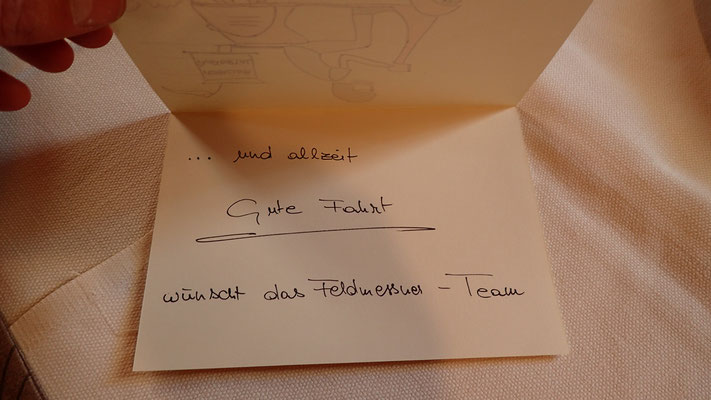 ... und allzeit
Gute Fahrt
wünscht das Feldmessner - Team